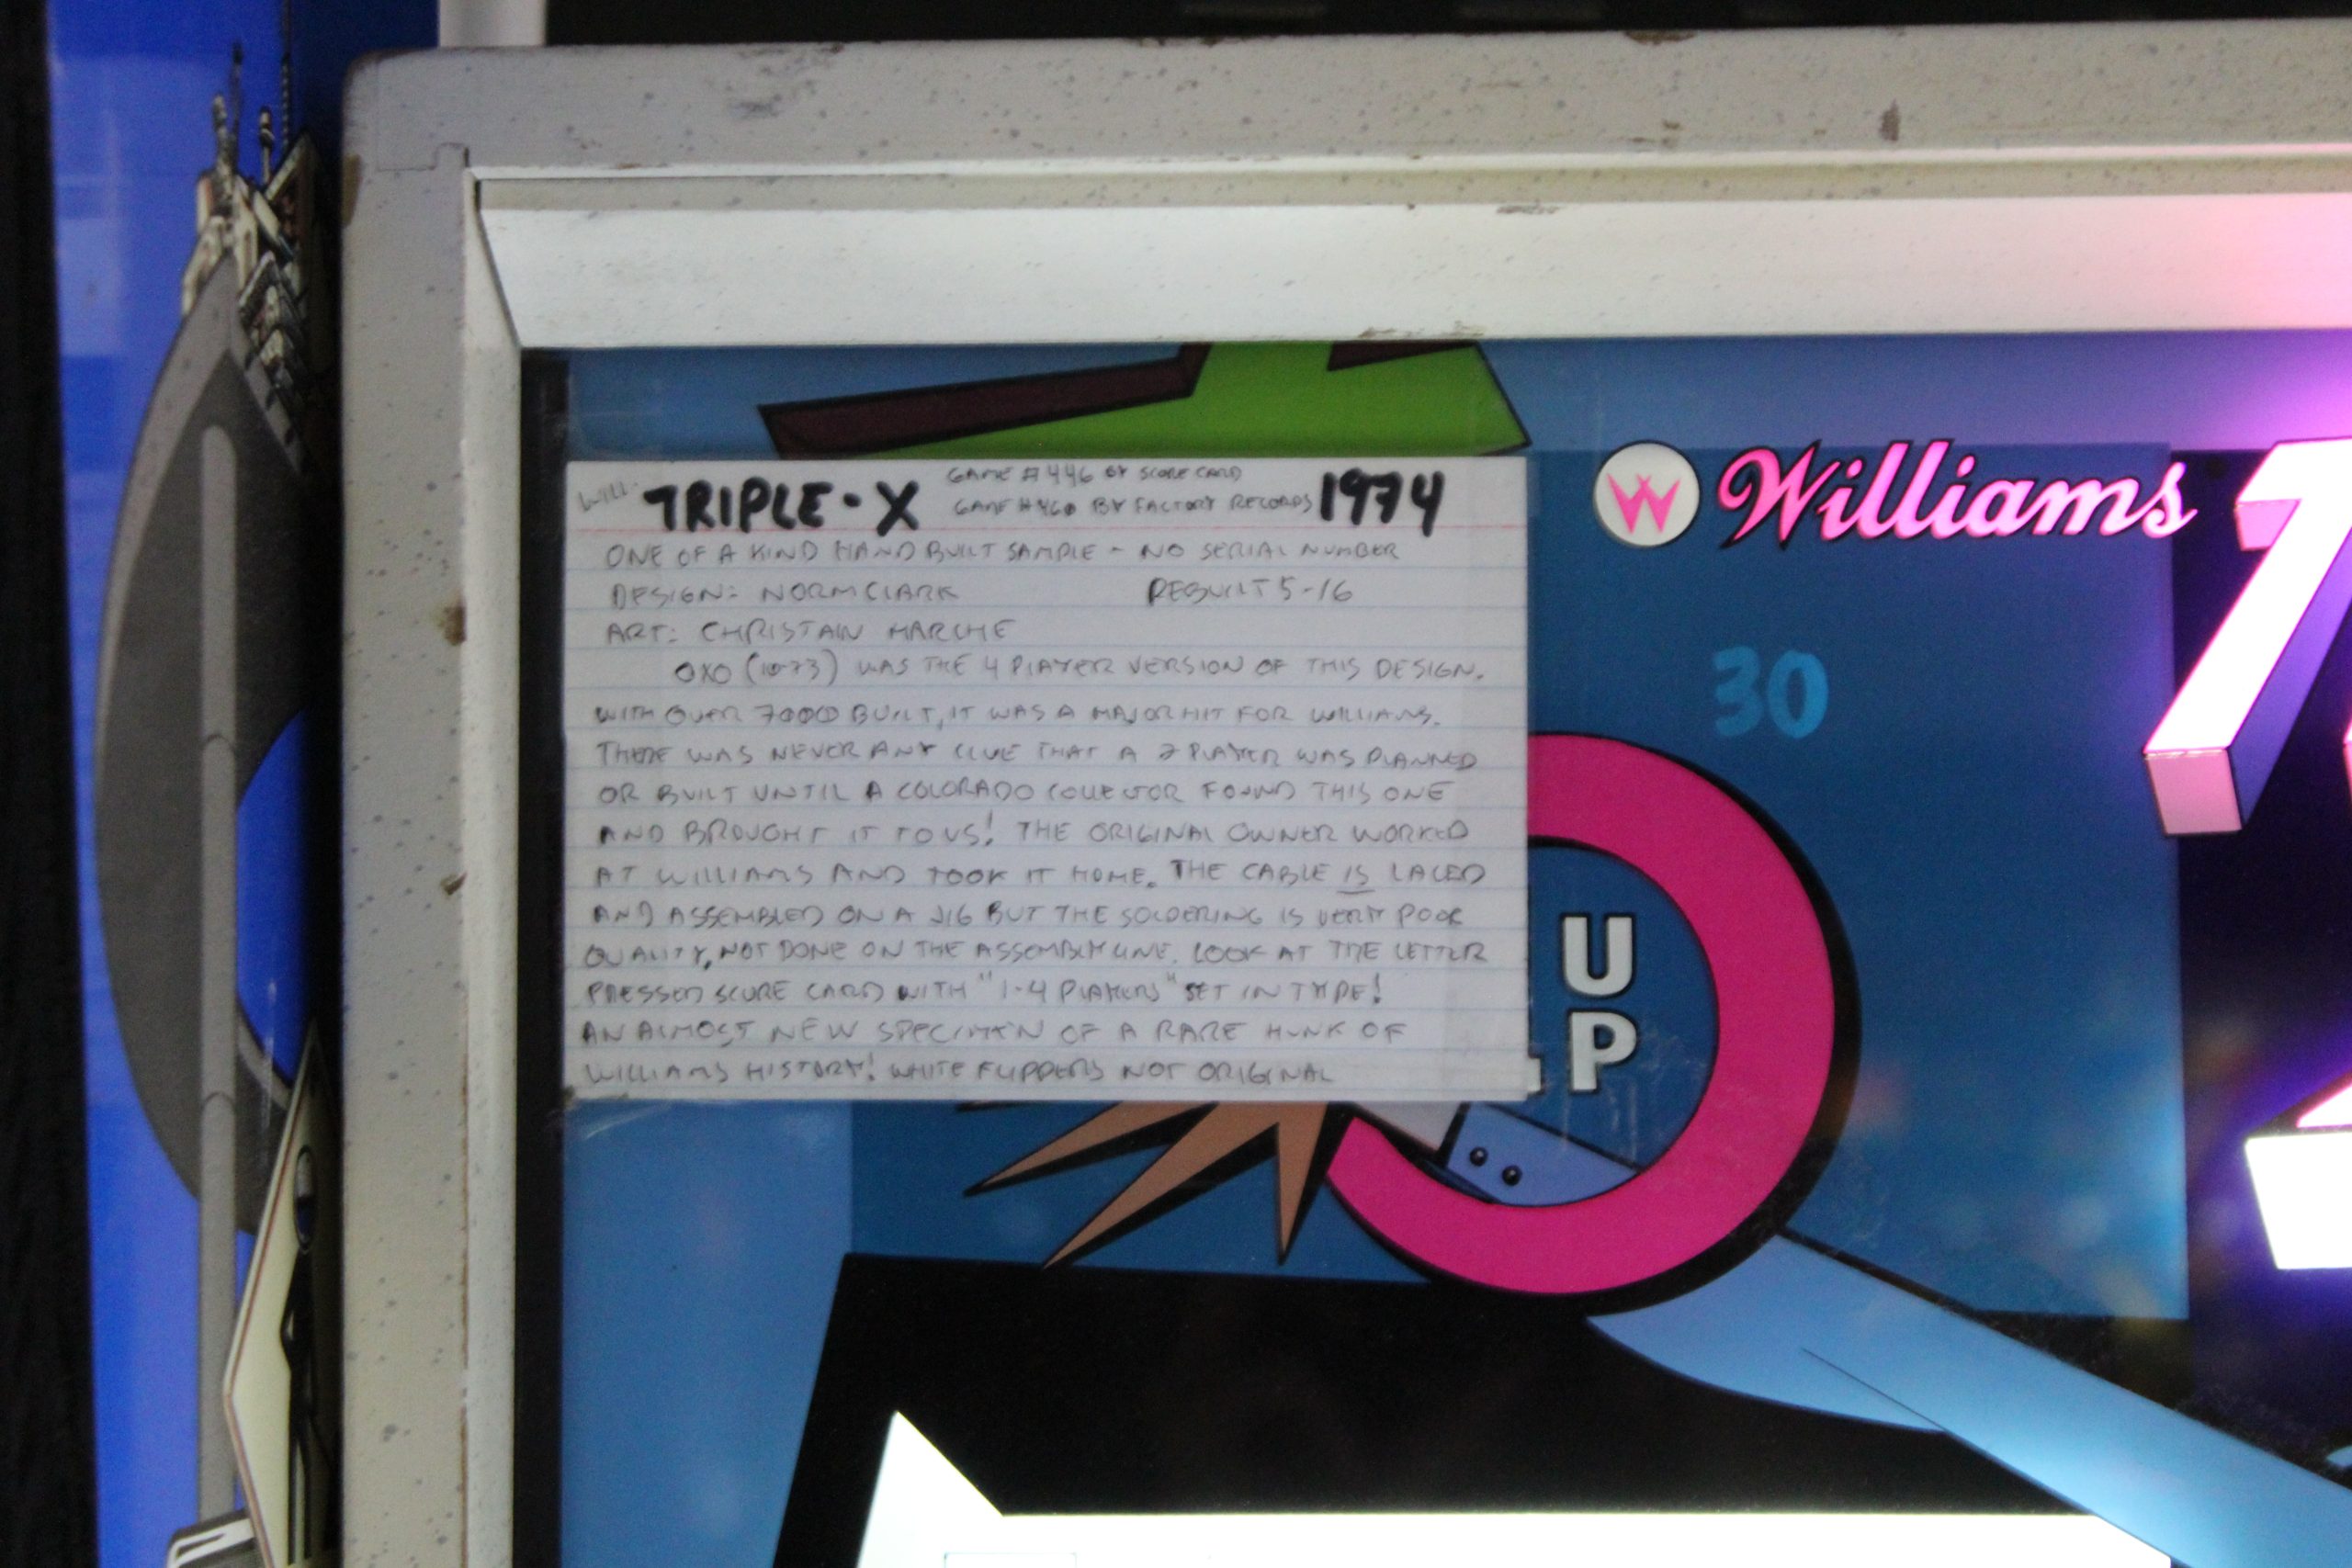 WILL. TRIPLE-X GAME #446 BY SCORE CARD 1974
GAME #460 BY FACTORY RECORDS
ONE OF A KIND HAND BUILT SAMPLE - NO SERIAL NUMBER
DESIGN: NORM CLARK REBUILT 5-16
ART: CHRISTAIN MARCHE
OXO (10-73) WAS THE 4 PLAYER VERSION OF THIS DESIGN.
WITH OVER 7000 BUILT, IT WAS A MAJOR HIT FOR WILLIAMS.
THERE WAS NEVER ANY CLUE THAT A 2 PLAYER WAS PLANNED
OR BUILT UNTIL A COLORADO COLLECTOR FOUND THIS ONE
AND BROUGHT IT TO US! THE ORIGINAL OWNER WORKED
AT WILLIAMS AND TOOK IT HOME. THE CABLE IS LACED
AND ASSEMBLED ON A JIG BUT THE SOLDERING IS VERY POOR
QUALITY, NOT DONE ON THE ASSEMBLY LINE. LOOK AT THE LETTER
PRESSED SCORE CARD WITH "1-4 PLAYERS" SET IN TYPE!
AN ALMOST NEW SPECIMEN OF A RARE HUNK OF
WILLIAMS HISTORY! WHITE FLIPPERS NOT ORIGINAL
W Williams
30
U
P